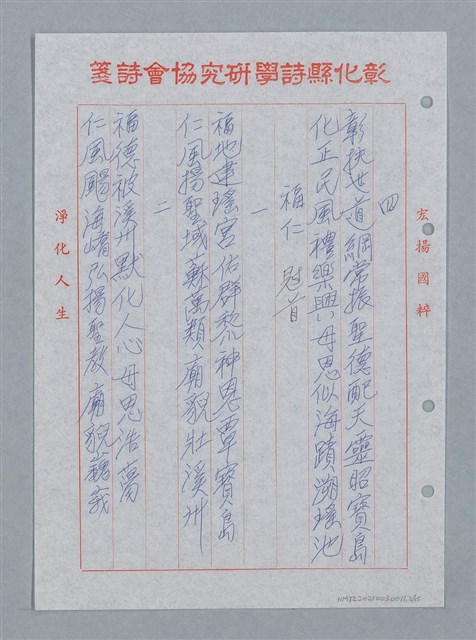 彰化縣詩學研究協會詩箋
宏揚國粹
四
彰扶世道綱常振聖德配天靈昭寶島
化正民風禮樂興母恩似海蹟溯瑤池
福仁 冠首
一
福地建瑤宮佑群黎神恩覃寶島
仁風揚聖域蘇萬類廟貌壯溪州
二
福德被溪州默化人心母恩浩蕩
仁風颺海嶠弘揚聖教廟貌巍峩
淨化人生